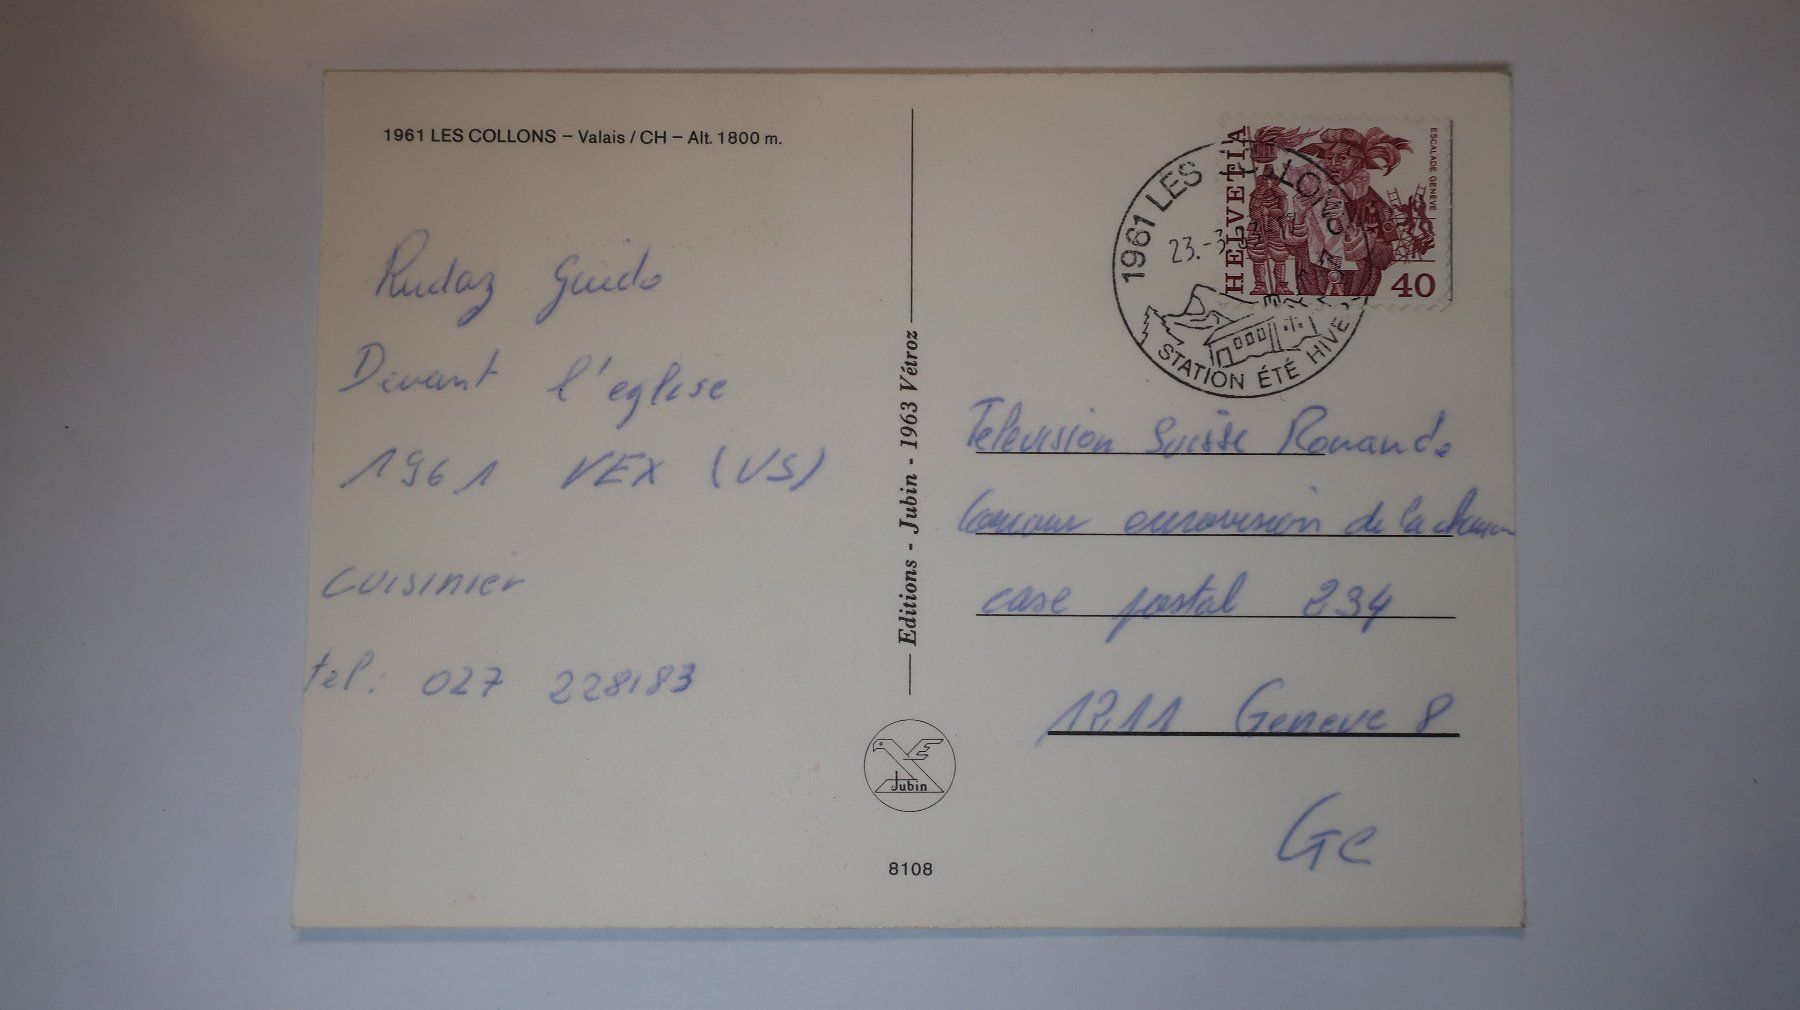 1961 LES COLLONS – Valais / CH – Alt. 1800 m.
Rudaz Guido
Devant l'eglise
1961 VEX (VS)
cuisinier
tel. : 027 228183
Editions - Jubin - 1963 Vétroz
Jubin
8108
HELVETIA
ESCALADE GENÈVE
40
1961 LES COLLONS
23.-3.
STATION ÉTÉ HIVER
Television Suisse Romande
eurovision de la
case postal 234
1211 Geneve 8
Ge